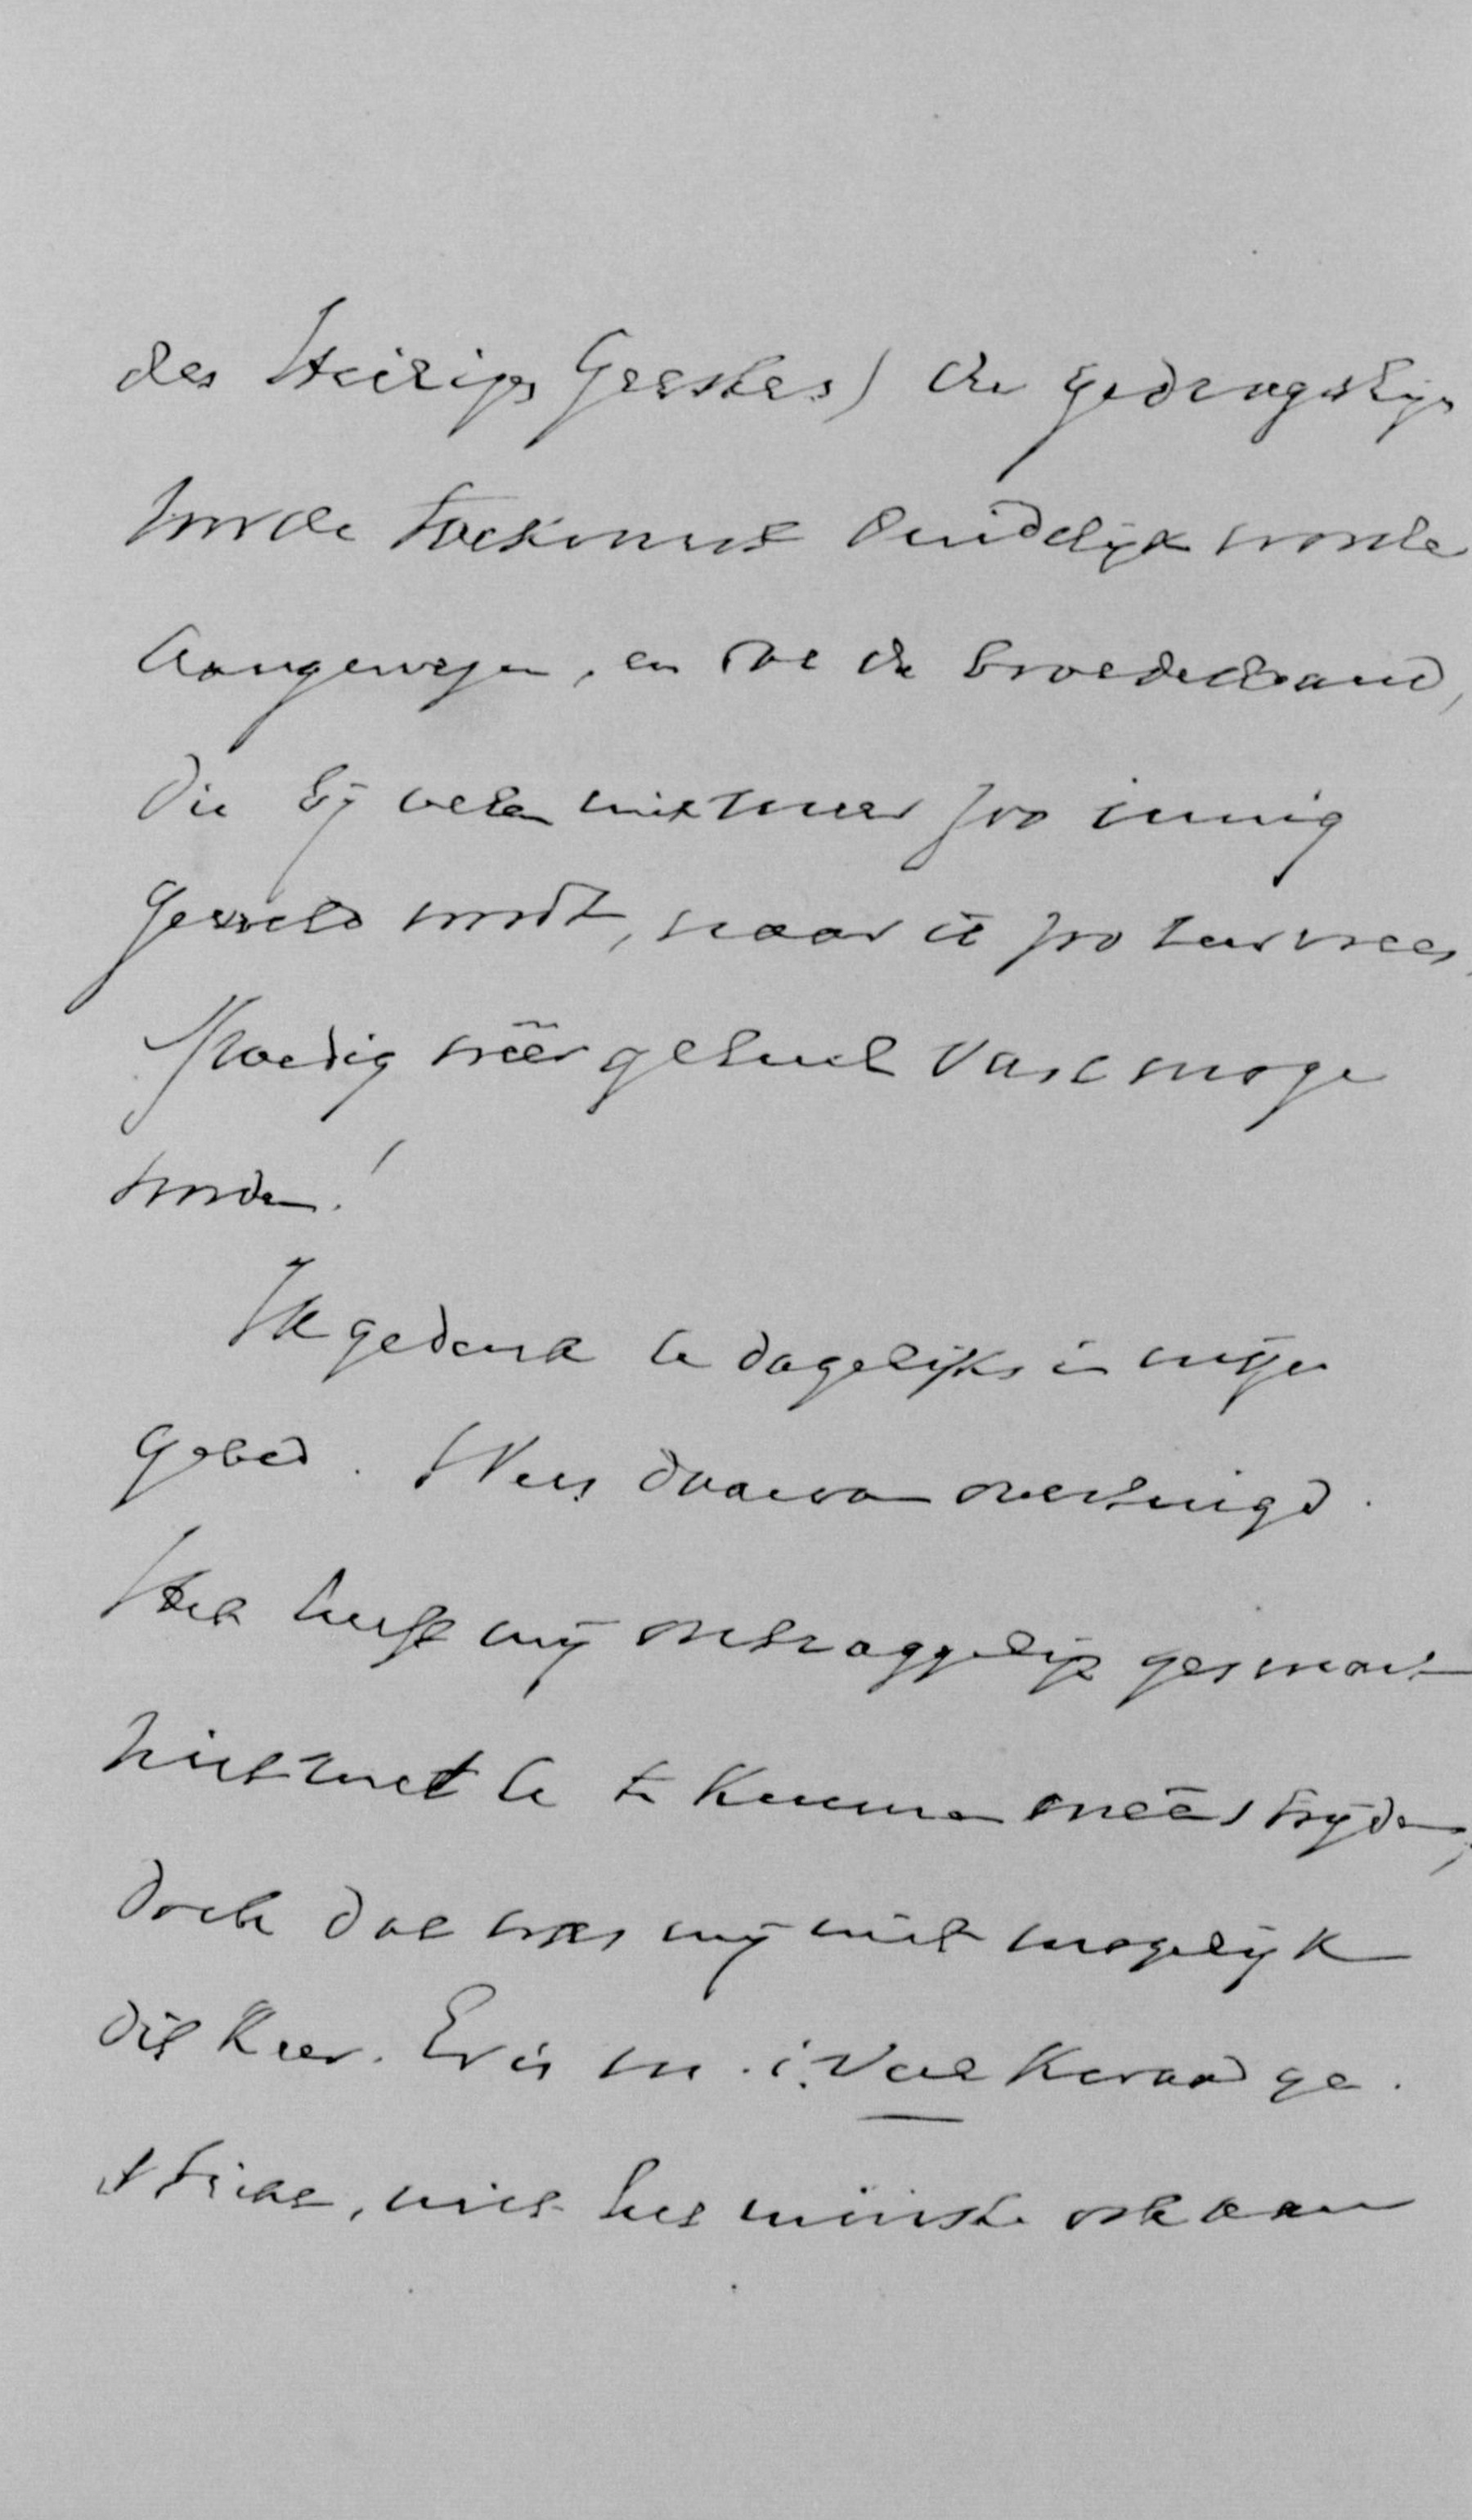 des Heiligen Geestes) de gedragslijn
voor de toekomst duidelijk worde
aangewezen, en dat de broederband,
die bij velen niet meer zoo innig
gevoeld wordt, naar ik zoo zeer vrees,
spoedig weêr geheel vast moge
worden!
Ik gedenk U dagelijks in mijn
gebed. Wees daarvan overtuigd.
Het heeft mij onbeschrijfelijk gesmart
niet met U te kunnen meêstrijden,
doch dat was mij niet mogelijk
dit keer. Er is m. i. veel kwaad ge-
sticht, niet het minste ook aan